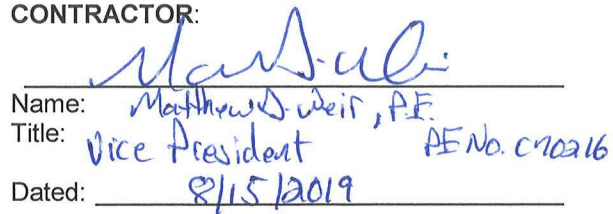 CONTRACTOR:
Name: Matthew D. Weir, P.E.
Title: Vice President PE No. C70216
Dated: 8/15/2019